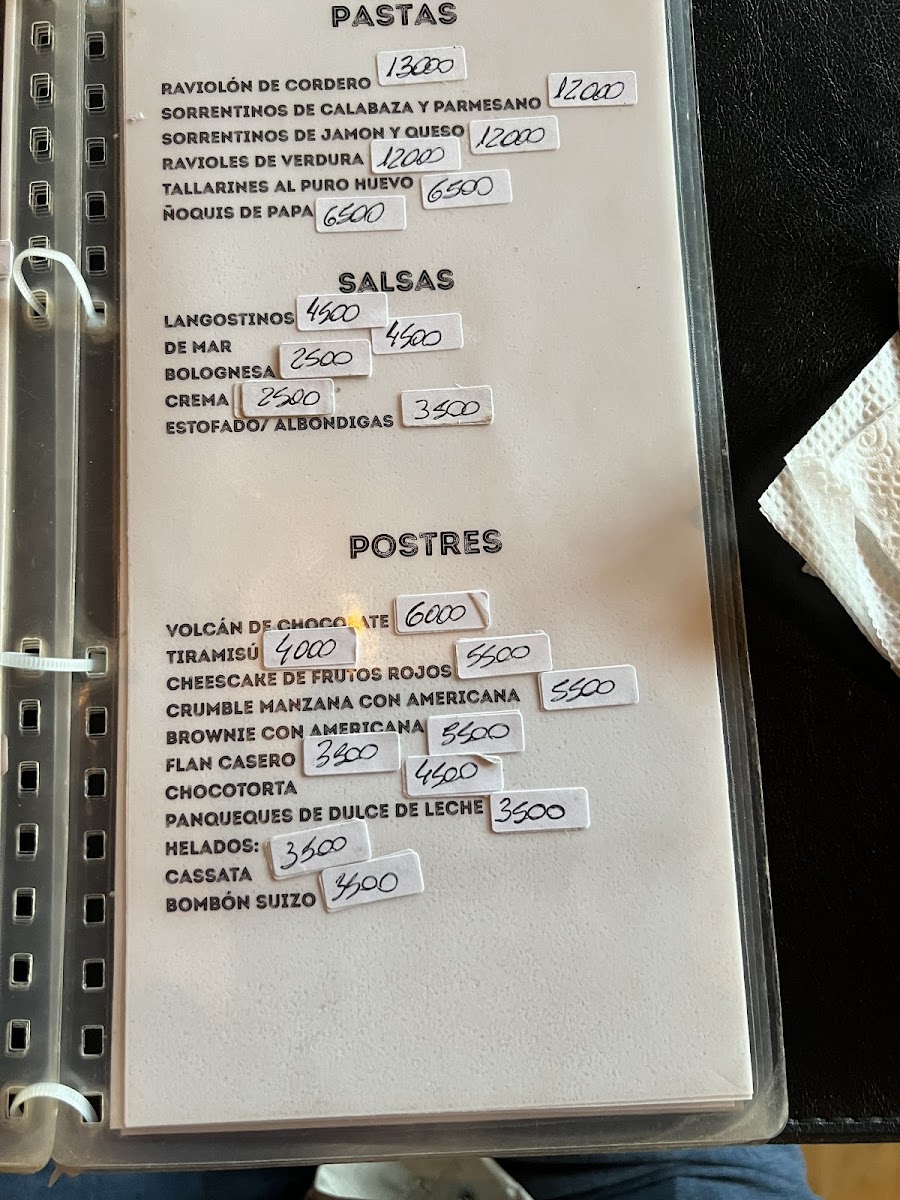 PASTAS
RAVIOLÓN DE CORDERO 13000
SORRENTINOS DE CALABAZA Y PARMESANO 12000
SORRENTINOS DE JAMON Y QUESO 12000
RAVIOLES DE VERDURA 12000
TALLARINES AL PURO HUEVO 6500
ÑOQUIS DE PAPA 6500
SALSAS
LANGOSTINOS 4500
DE MAR 4500
BOLOGNESA 2500
CREMA 2500
ESTOFADO/ ALBONDIGAS 3500
POSTRES
VOLCÁN DE CHOCOLATE 6000
TIRAMISÚ 4000
CHEESCAKE DE FRUTOS ROJOS 5500
CRUMBLE MANZANA CON AMERICANA 5500
BROWNIE CON AMERICANA 5500
FLAN CASERO 3500
CHOCOTORTA 4500
PANQUEQUES DE DULCE DE LECHE 3500
HELADOS:
CASSATA 3500
BOMBÓN SUIZO 3500